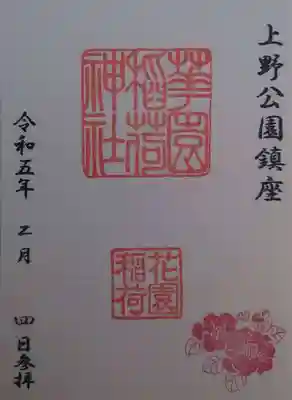 上野公園鎮座
華園
稲荷
神社
花園
稲荷
令和五年 二月 四日参拝